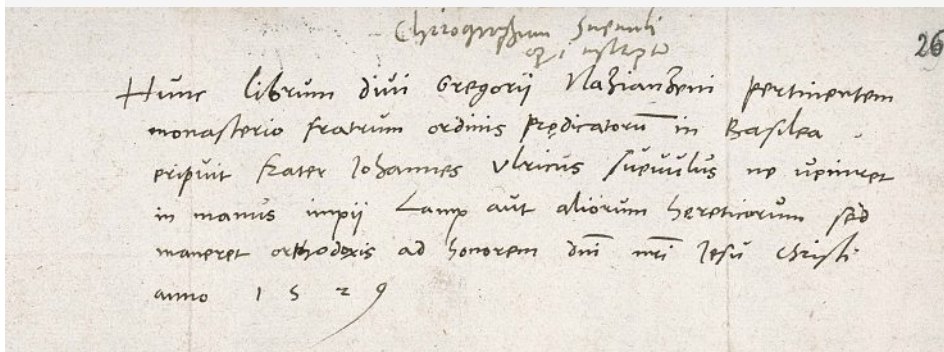 Chirographum Sueuuli
26
Hunc librum diui Gregorii Nazianzeni pertinentem
monasterio fratrum ordinis prędicatorū in Basilea
eripuit frater Iohannes Vlricus sueuulus ne ueniret
in manus impii Lamp aut aliorum hereticorum sed
maneret orthodoxis ad honorem dn̄i nr̄i Iesu christi
anno 1529